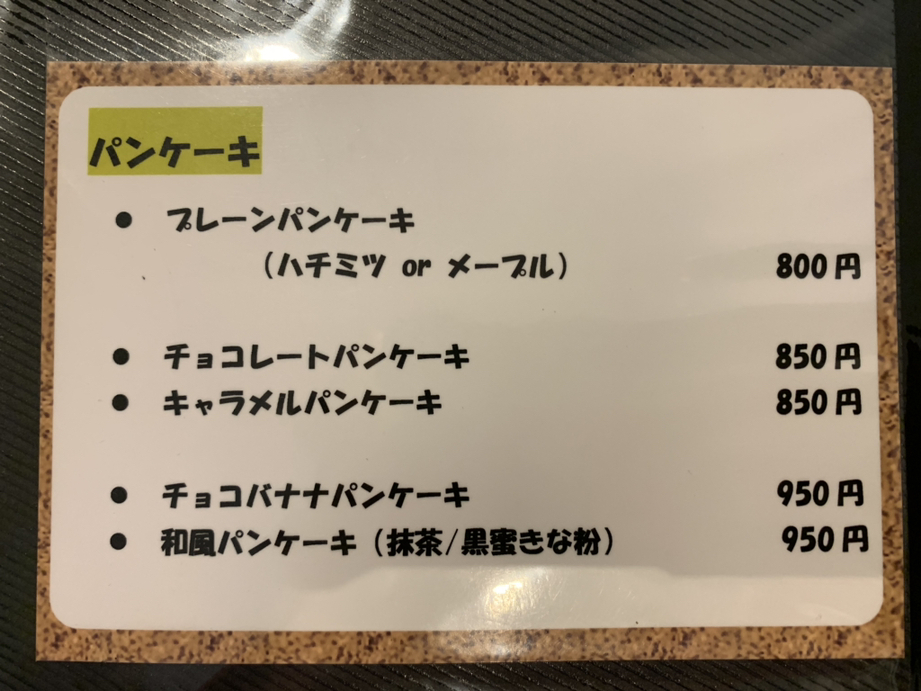 パンケーキ
● プレーンパンケーキ
（ハチミツ or メープル） 800円
● チョコレートパンケーキ 850円
● キャラメルパンケーキ 850円
● チョコバナナパンケーキ 950円
● 和風パンケーキ（抹茶/黒蜜きな粉） 950円